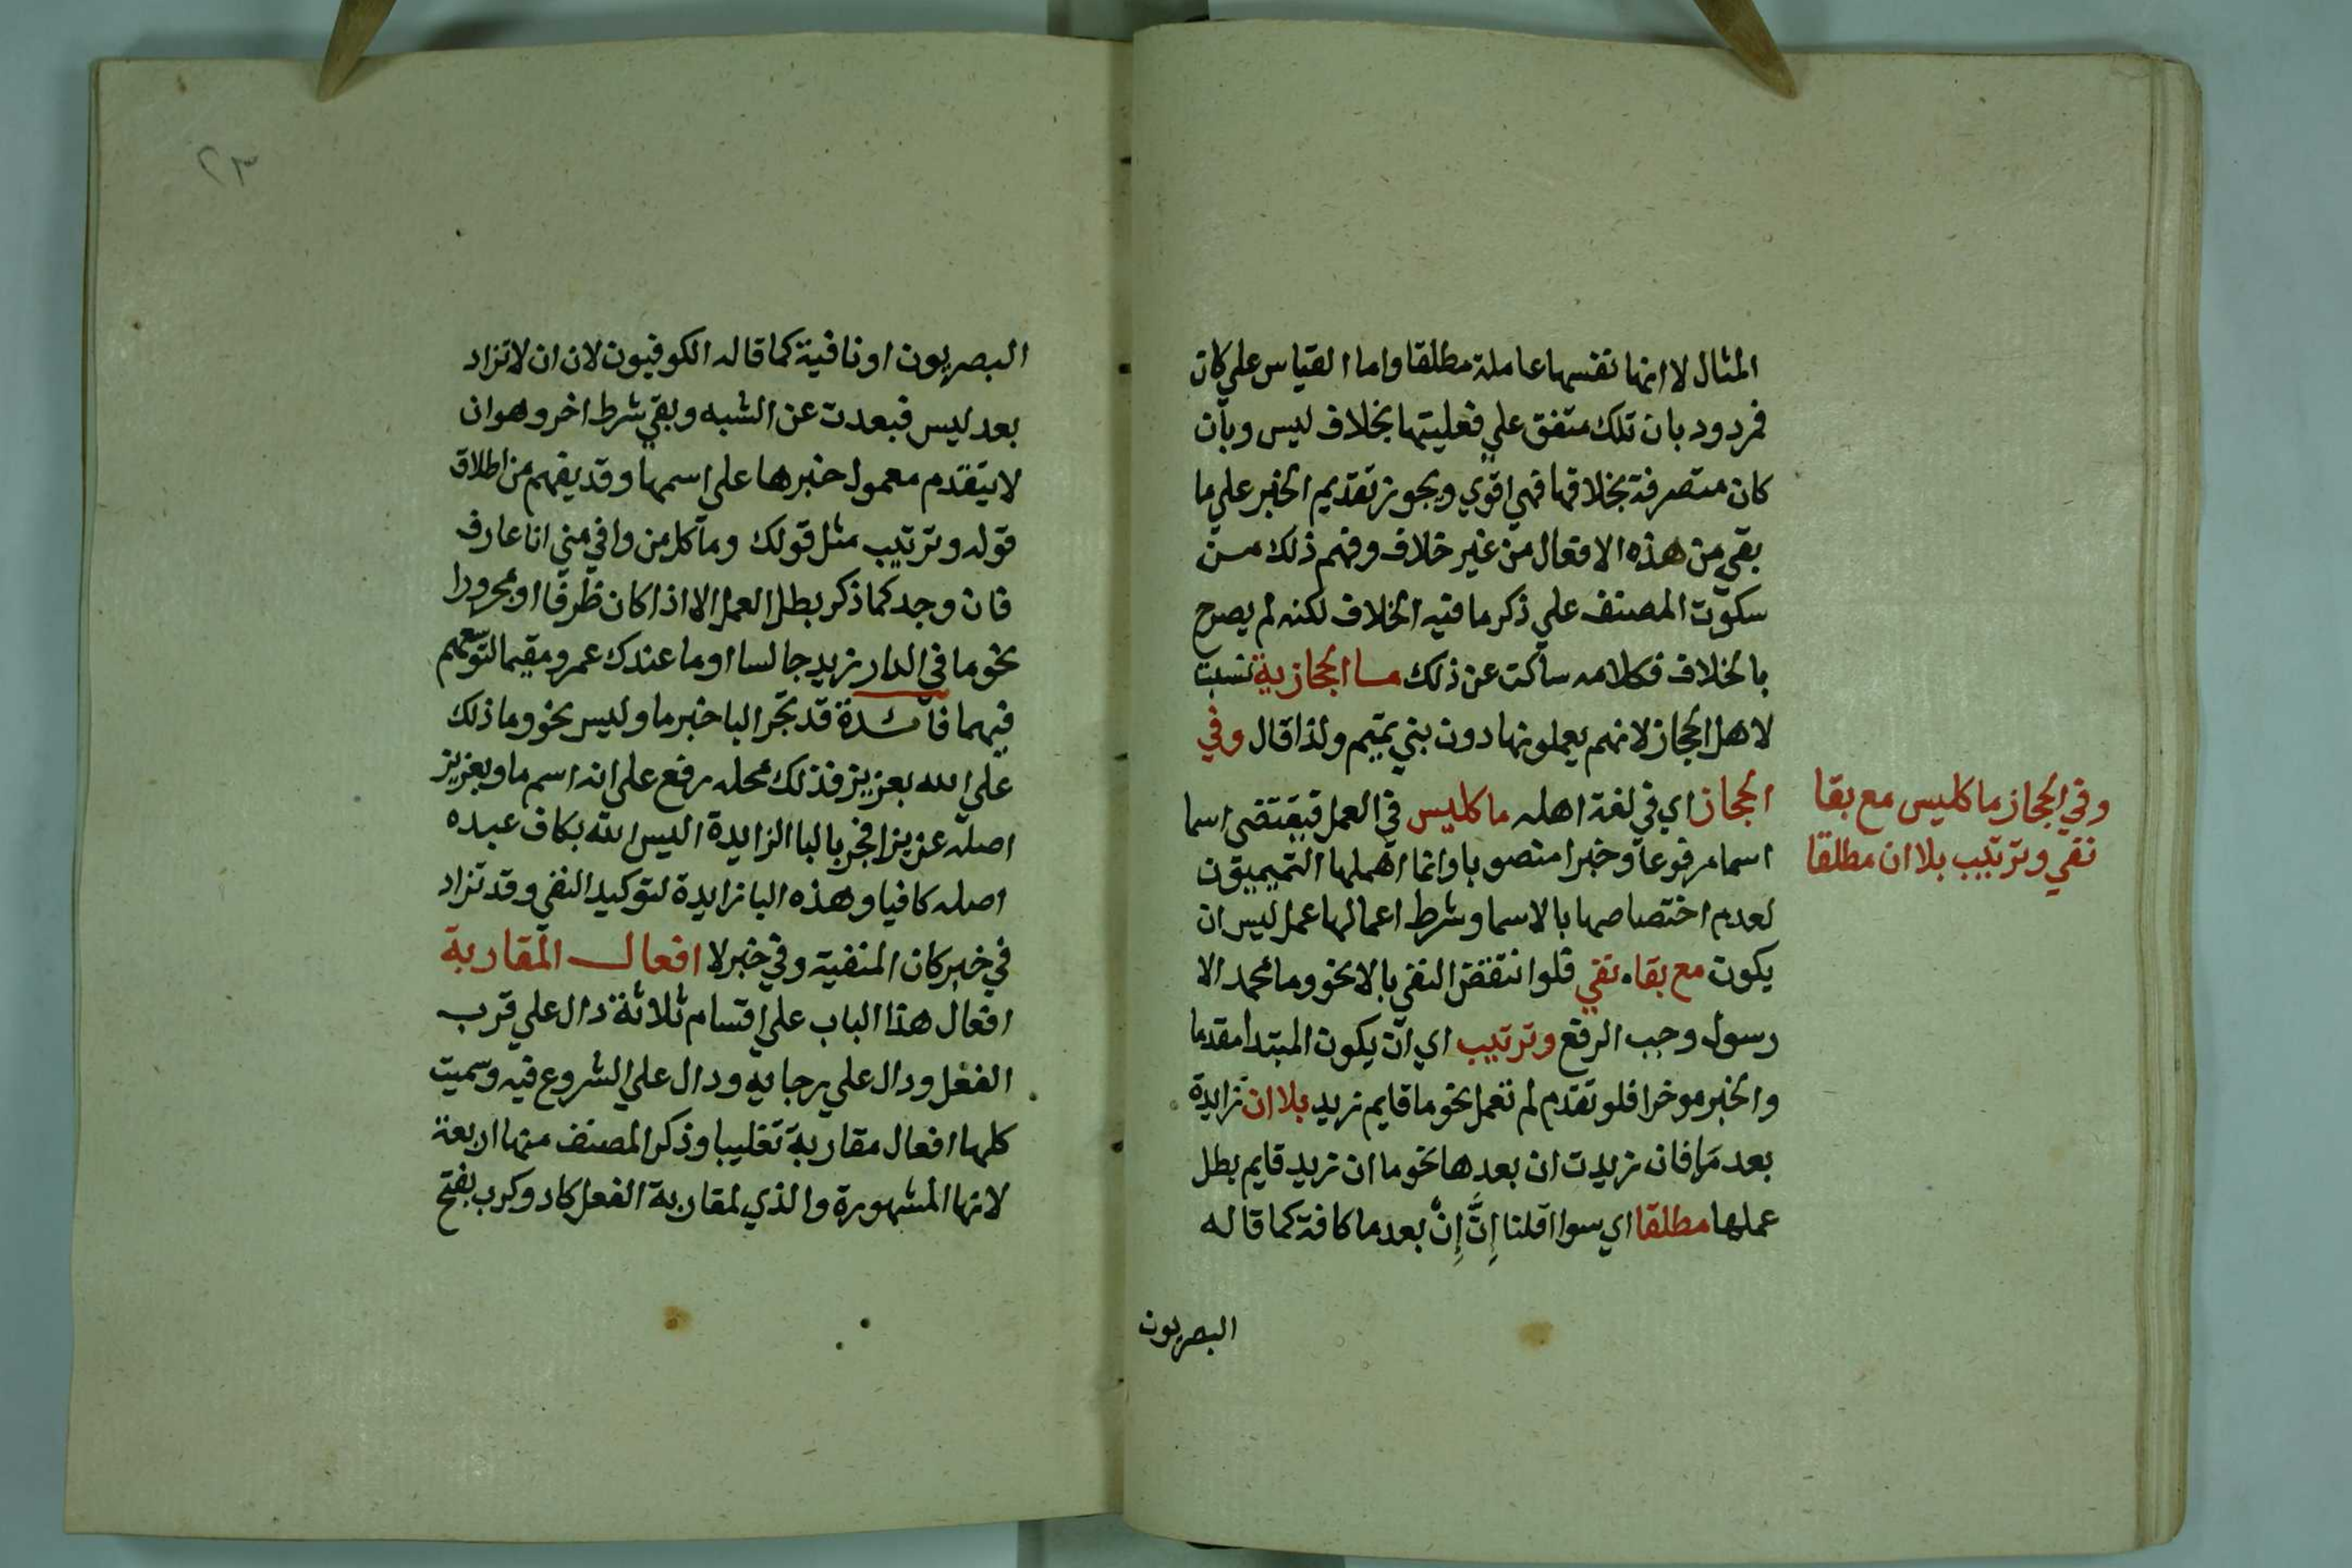 المثال لا انها نفسها عاملة مطلقا واما القياس علي كان
فمردود بان تلك متفق علي فعليتها بخلاف ليس وبان
كان متصرفة بخلافها فهي اقوي ويجوز تقديم الخبر علي ما
بقي من هذه الافعال من غير خلاف وفهم ذلك من
سكوت المصنف علي ذكر ما فيه الخلاف لكنه لم يصرح
بالخلاف فكلامه ساكت عن ذلك ما الحجازية نسبت
لاهل الحجاز لانهم يعملونها دون بني تميم ولذا قال وفي
الحجاز اي في لغة اهله ما كليس في العمل فيقتضي اسما
اسما مرفوعا وخبرا منصوبا وانما اهملها التميميون
لعدم اختصاصها بالاسما وشرط اعمالها عمل ليس ان
يكون مع بقاء نفي فلو انتقض النفي بالا نحو وما محمد الا
رسول وجب الرفع وترتيب اي ان يكون المبتدا مقدما
والخبر موخرا فلو تقدم لم تعمل نحو ما قايم زيد بلا ان زايدة
بعد ما فان زيدت ان بعدها نحو ما ان زيد قايم بطل
عملها مطلقا اي سوا قلنا اِنَّ اِنْ بعد ما كافة كما قاله
البصريون
وفي الحجاز ما كليس مع بقا
نفي وترتيب بلا ان مطلقا
٢٣
البصريون او نافية كما قاله الكوفيون لان ان لا تزاد
بعد ليس فبعدت عن الشبه وبقي شرط اخر وهو ان
لا يتقدم معمول خبرها علي اسمها وقد يفهم من اطلاق
قوله وترتيب مثل قولك وما كل من وافي مني انا عارف
فان وجد كما ذكر بطل العمل الا اذا كان ظرفا او مجرورا
نحو ما في الدار زيد جالسا او ما عندك عمرو مقيما لتوسعهم
فيهما فائدة قد تجر البا خبر ما وليس نحو وما ذلك
علي الله بعزيز فذلك محله رفع علي انه اسم ما وبعزيز
اصله عزيزا فجر بالبا الزايدة اليس الله بكاف عبده
اصله كافيا وهذه البا زايدة لتوكيد النفي وقد تزاد
في خبر كان المنفية وفي خبر لا افعال المقاربة
افعال هذا الباب علي اقسام ثلاثة دال علي قرب
الفعل ودال علي رجايه ودال علي الشروع فيه وسميت
كلها افعال مقاربة تغليبا وذكر المصنف منها اربعة
لانها المشهورة والذي لمقاربة الفعل كاد وكرب بفتح